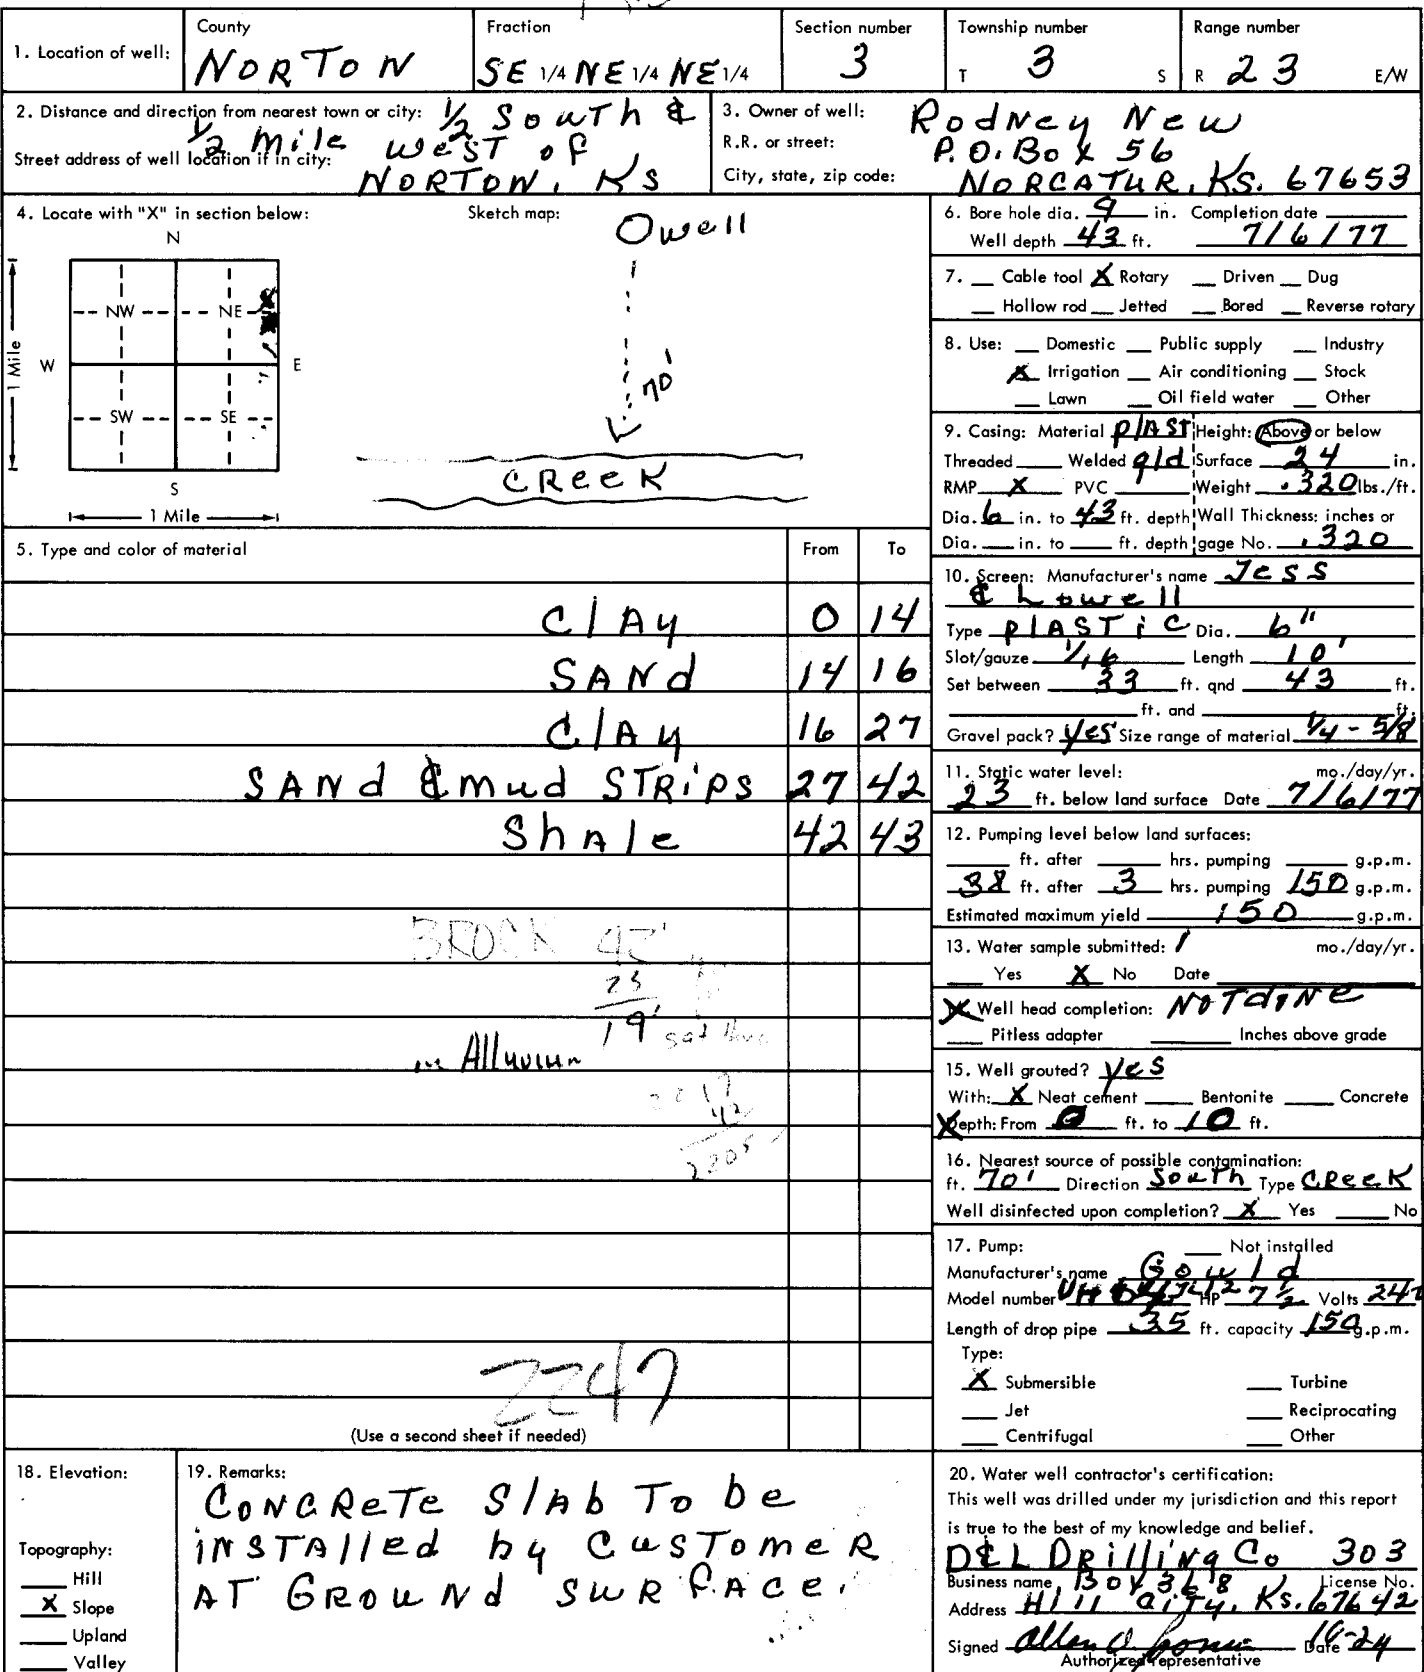 County Fraction Section number Township number Range number
1. Location of well: NORTON SE 1/4 NE 1/4 NE 1/4 3 T 3 S R 23 E/W
2. Distance and direction from nearest town or city: 1/2 South &
1/2 mile west of
Street address of well location if in city:
NORTON, KS
3. Owner of well: Rodney New
R.R. or street: P.O. Box 56
City, state, zip code: NORCATUR, KS. 67653
4. Locate with "X" in section below: Sketch map:
N
NW NE
W E
SW SE
S
1 Mile
1 Mile
O well
70'
CREEK
6. Bore hole dia. 9 in. Completion date
Well depth 43 ft. 7/6/77
7. Cable tool X Rotary Driven Dug
Hollow rod Jetted Bored Reverse rotary
8. Use: Domestic Public supply Industry
X Irrigation Air conditioning Stock
Lawn Oil field water Other
9. Casing: Material PlAST Height: Above or below
Threaded Welded gld Surface 24 in.
RMP X PVC Weight .320 lbs./ft.
Dia. 6 in. to 43 ft. depth Wall Thickness: inches or
Dia. in. to ft. depth gage No. .320
5. Type and color of material From To
ClAy 0 14
SANd 14 16
ClAy 16 27
SANd & mud STRiPS 27 42
ShAle 42 43
BROCK 42'
23
19' sat
in Alluvium
2217
12
2205
2247
(Use a second sheet if needed)
10. Screen: Manufacturer's name Jess
& Lowell
Type PlASTiC Dia. 6"
Slot/gauze 1/16 Length 10'
Set between 33 ft. and 43 ft.
ft. and ft.
Gravel pack? yes Size range of material 1/4 - 5/8
11. Static water level: mo./day/yr.
23 ft. below land surface Date 7/6/77
12. Pumping level below land surfaces:
ft. after hrs. pumping g.p.m.
38 ft. after 3 hrs. pumping 150 g.p.m.
Estimated maximum yield 150 g.p.m.
13. Water sample submitted: mo./day/yr.
Yes X No Date
Well head completion: NOT dONE
Pitless adapter Inches above grade
15. Well grouted? yes
With: X Neat cement Bentonite Concrete
Depth: From 0 ft. to 10 ft.
16. Nearest source of possible contamination:
ft. 70' Direction South Type CReeK
Well disinfected upon completion? X Yes No
17. Pump: Not installed
Manufacturer's name Gould
Model number HP 7 1/2 Volts
Length of drop pipe 35 ft. capacity 150 g.p.m.
Type:
X Submersible Turbine
Jet Reciprocating
Centrifugal Other
18. Elevation:
Topography:
Hill
X Slope
Upland
Valley
19. Remarks:
CONCReTe SlAb To be
iNSTAlled by CusTomeR
AT GRouNd suRfACe.
20. Water well contractor's certification:
This well was drilled under my jurisdiction and this report
is true to the best of my knowledge and belief.
D&L DRilliNg Co 303
Business name License No.
Box 368
Address Hill City, Ks. 67642
Signed Date 10-24
Authorized representative